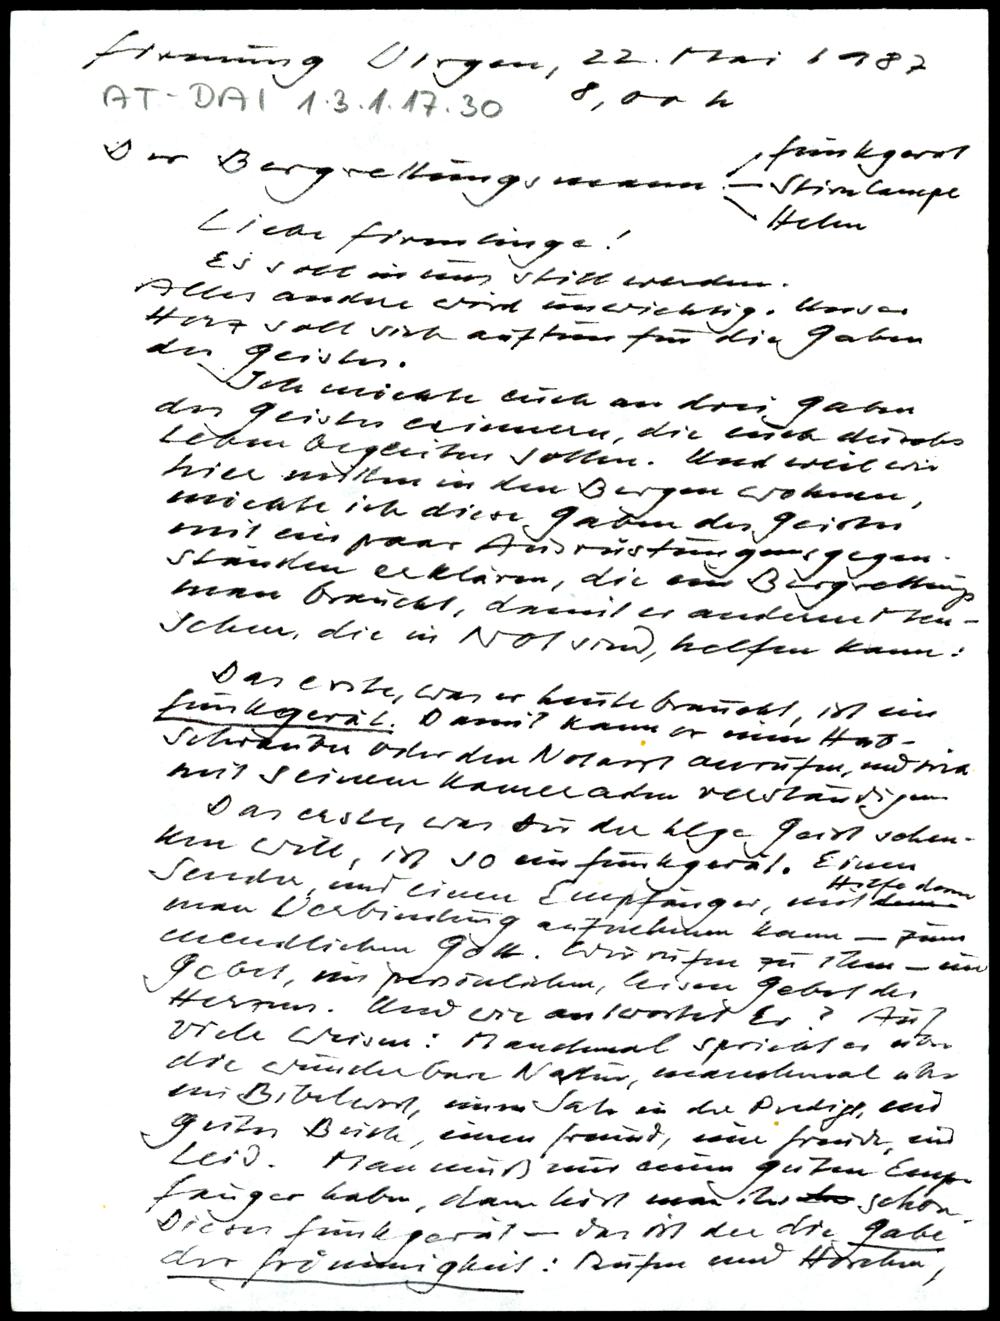 Firmung Virgen, 22. Mai 1987
AT-DAI 1.3.1.17.30 8,00 h
Der Bergrettungsmann – Funkgerät
Stirnlampe
Helm
Liebe Firmlinge!
Es soll in uns still werden.
Alles andere wird unwichtig. Unser
Herz soll sich auftun für die Gaben
des Geistes.
Ich möchte euch an drei Gaben
des Geistes erinnern, die euch durchs
Leben begleiten sollen. Und weil wir
hier mitten in den Bergen wohnen,
möchte ich diese Gaben des Geistes
mit ein paar Ausrüstungsgegen-
ständen erklären, die ein Bergrettungs
mann braucht, damit er anderen Men-
schen, die in Not sind, helfen kann:
Das erste, was er heute braucht, ist ein
Funkgerät. Damit kann er einen Hub-
schrauber oder den Notarzt anrufen, und sich
mit seinem Kameraden verständigen
Das erste, was dir der hlge Geist schen-
ken will, ist so ein Funkgerät. Einen
Sender, und einen Empfänger, mit Hilfe dem
man Verbindung aufnehmen kann – zum
unendlichen Gott. Wir rufen zu ihm – im
Gebet, im persönlichen, leisen Gebet des
Herzens. Und wie antwortet Er? Auf
viele Weisen: Manchmal spricht er über
die wunderbare Natur, manchmal über
ein Bibelwort, einen Satz in der Predigt, eine
gute Beicht, einen Freund, eine Freude, ein
Leid. Man muß nur einen guten Emp-
fänger haben, dann hört man ihn schon.
Dieses Funkgerät – das ist die Gabe
der Frömmigkeit: Rufen und Horchen,